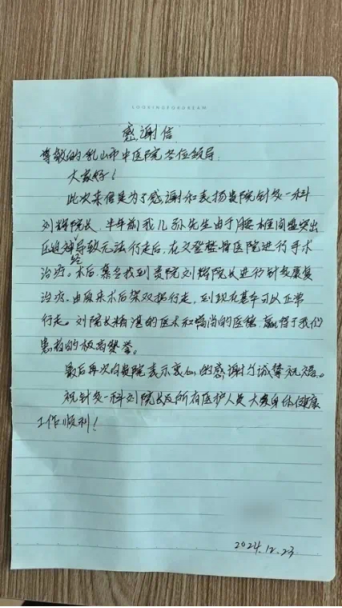 感谢信
尊敬的乳山市中医院各位领导
大家好！
此次来信是为了感谢和表扬贵院针灸一科
刘辉院长，半年前我儿孙先生由于腰椎间盘突出
压迫神经导致无法行走后，在文登整骨医院进行手术
治疗。术后慕名找到贵院刘辉院长进行针灸康复
治疗，由原来术后架双拐行走，到现在基本可以正常
行走。刘院长精湛的医术和高尚的医德，赢得了我们
患者的极高赞誉。
最后再次向贵院表示衷心的感谢与诚挚祝福。
祝针灸一科刘院长及所有医护人员大家身体健康
工作顺利！
2024.12.23